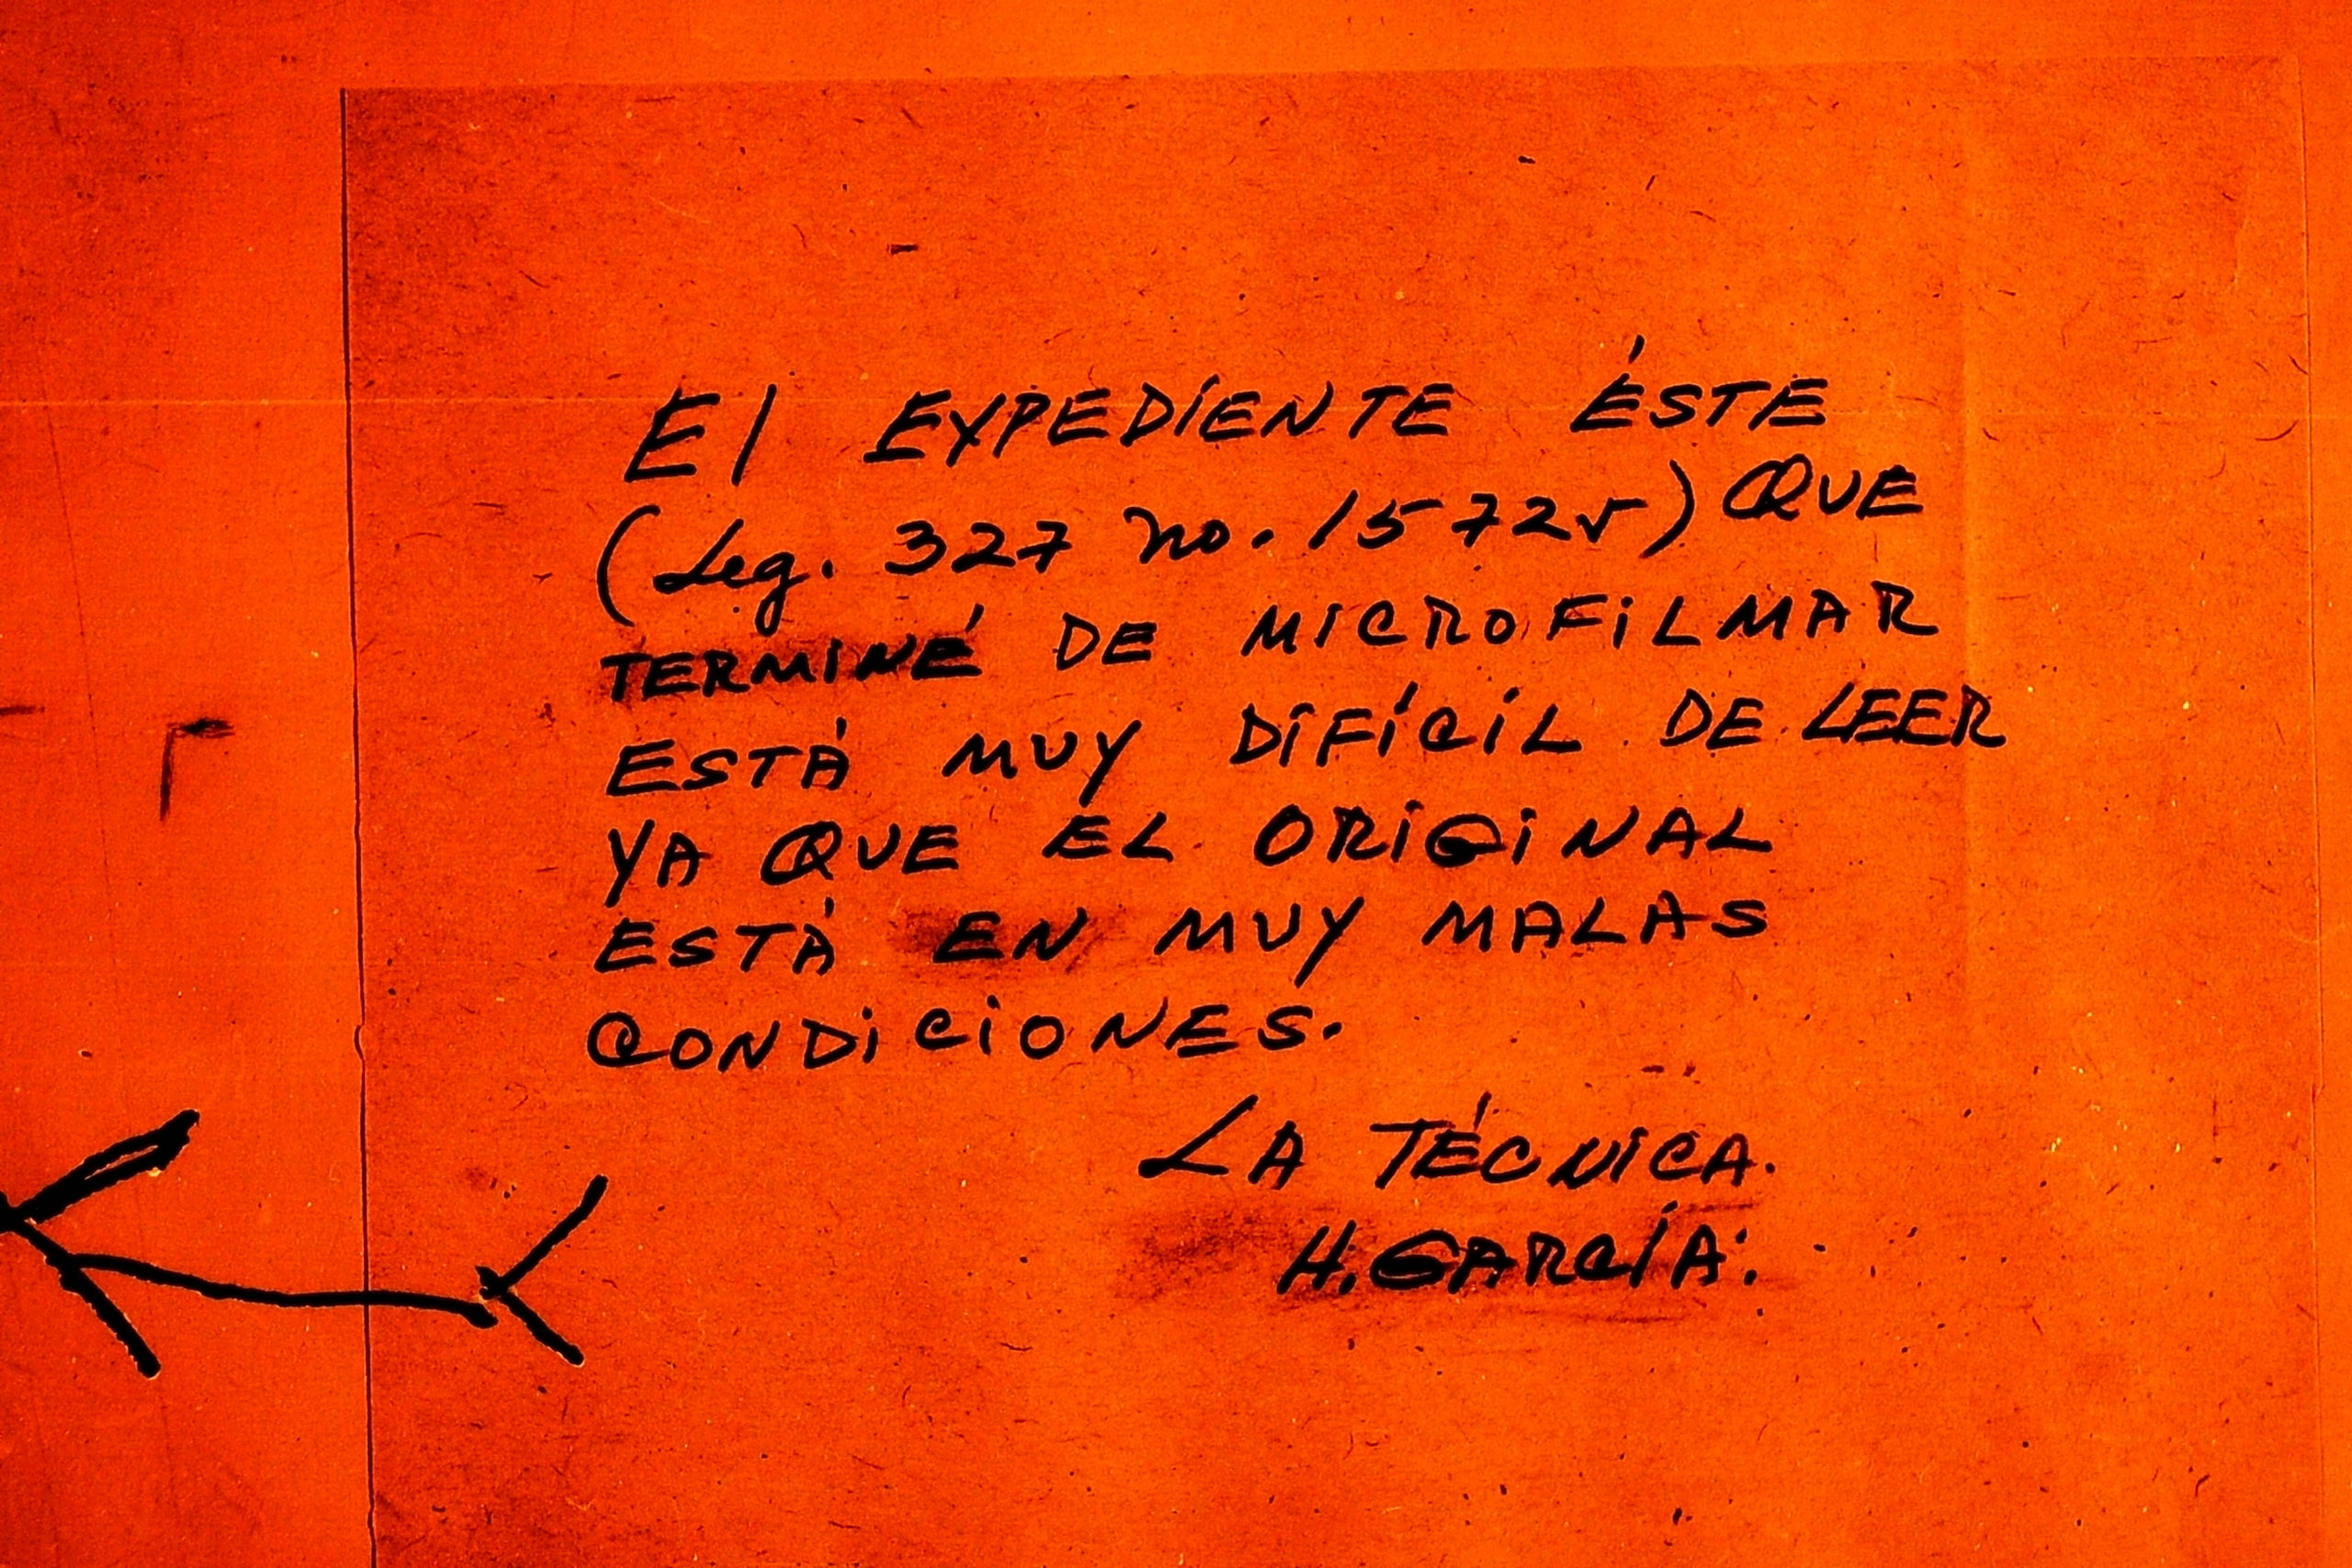 El EXPEDIENTE ÉSTE
(Leg. 327 no. 15725) QUE
TERMINÉ DE MICROFILMAR
ESTÁ MUY DIFÍCIL DE LEER
YA QUE EL ORIGINAL
ESTÁ EN MUY MALAS
CONDICIONES.
LA TÉCNICA.
H. GARCÍA: